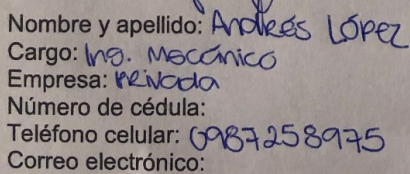 Nombre y apellido: Andrés López
Cargo: Ing. Mecánico
Empresa: PRIVada
Número de cédula:
Teléfono celular: 0987258975
Correo electrónico: